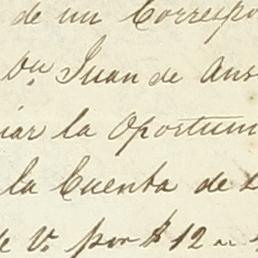 de un Correspo
Dn. Juan de Ans
iar la Oportuni
la Cuenta de
de V. por $12